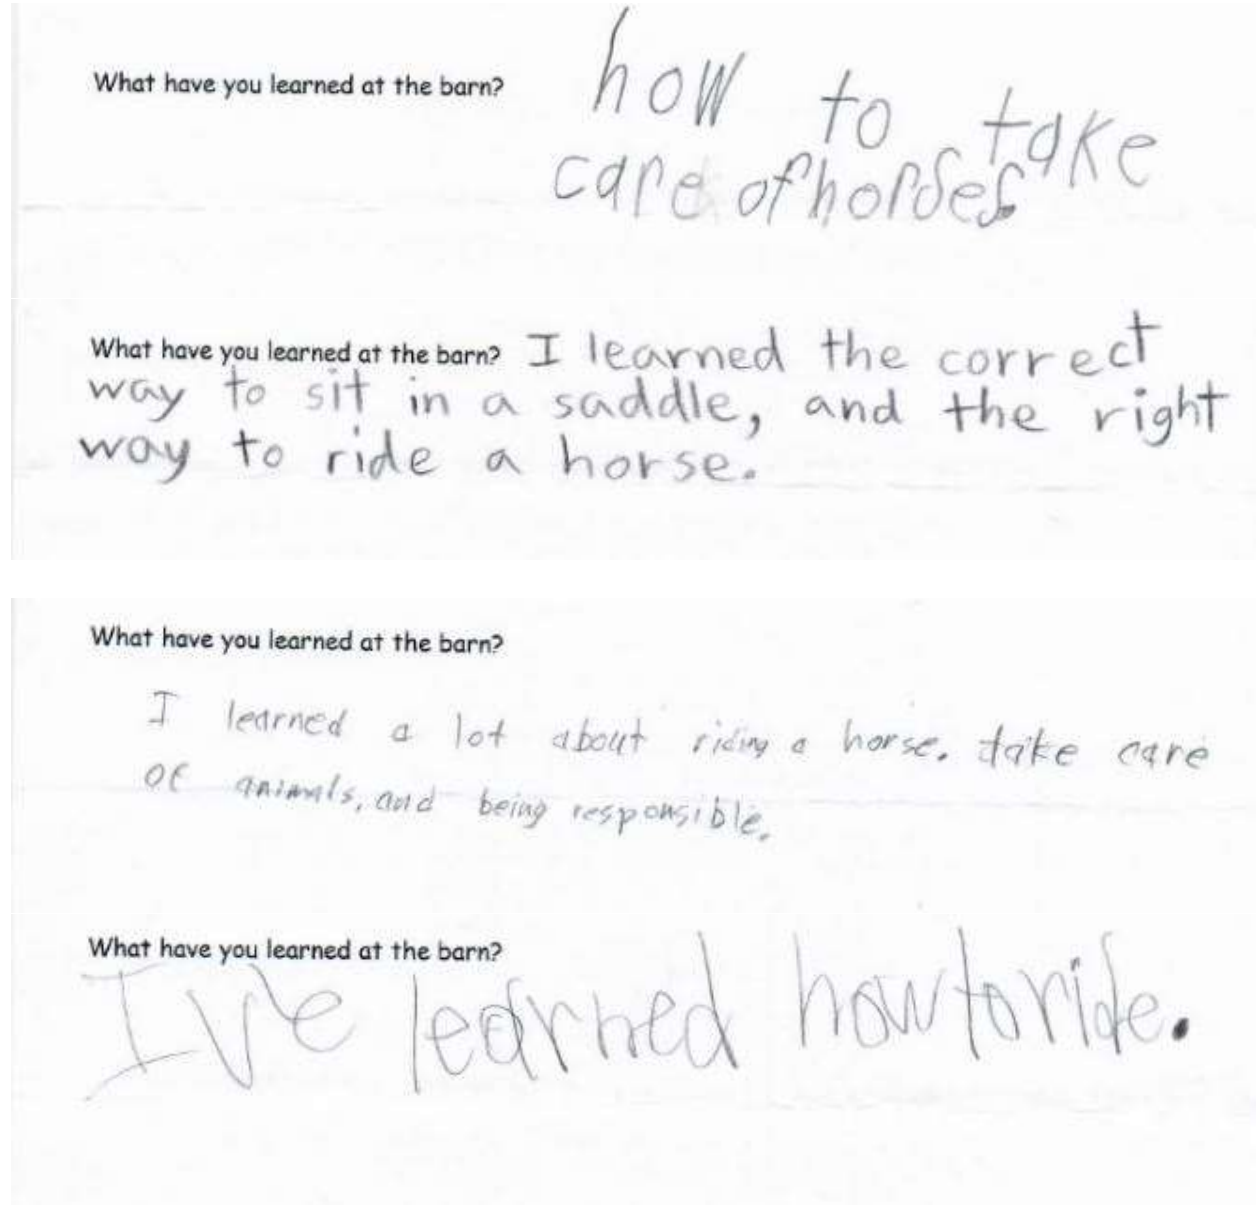 What have you learned at the barn? how to take
care of horses.
What have you learned at the barn? I learned the correct
way to sit in a saddle, and the right
way to ride a horse.
What have you learned at the barn?
I learned a lot about riding a horse. take care
of animals, and being responsible.
What have you learned at the barn?
Ive learned how to ride.